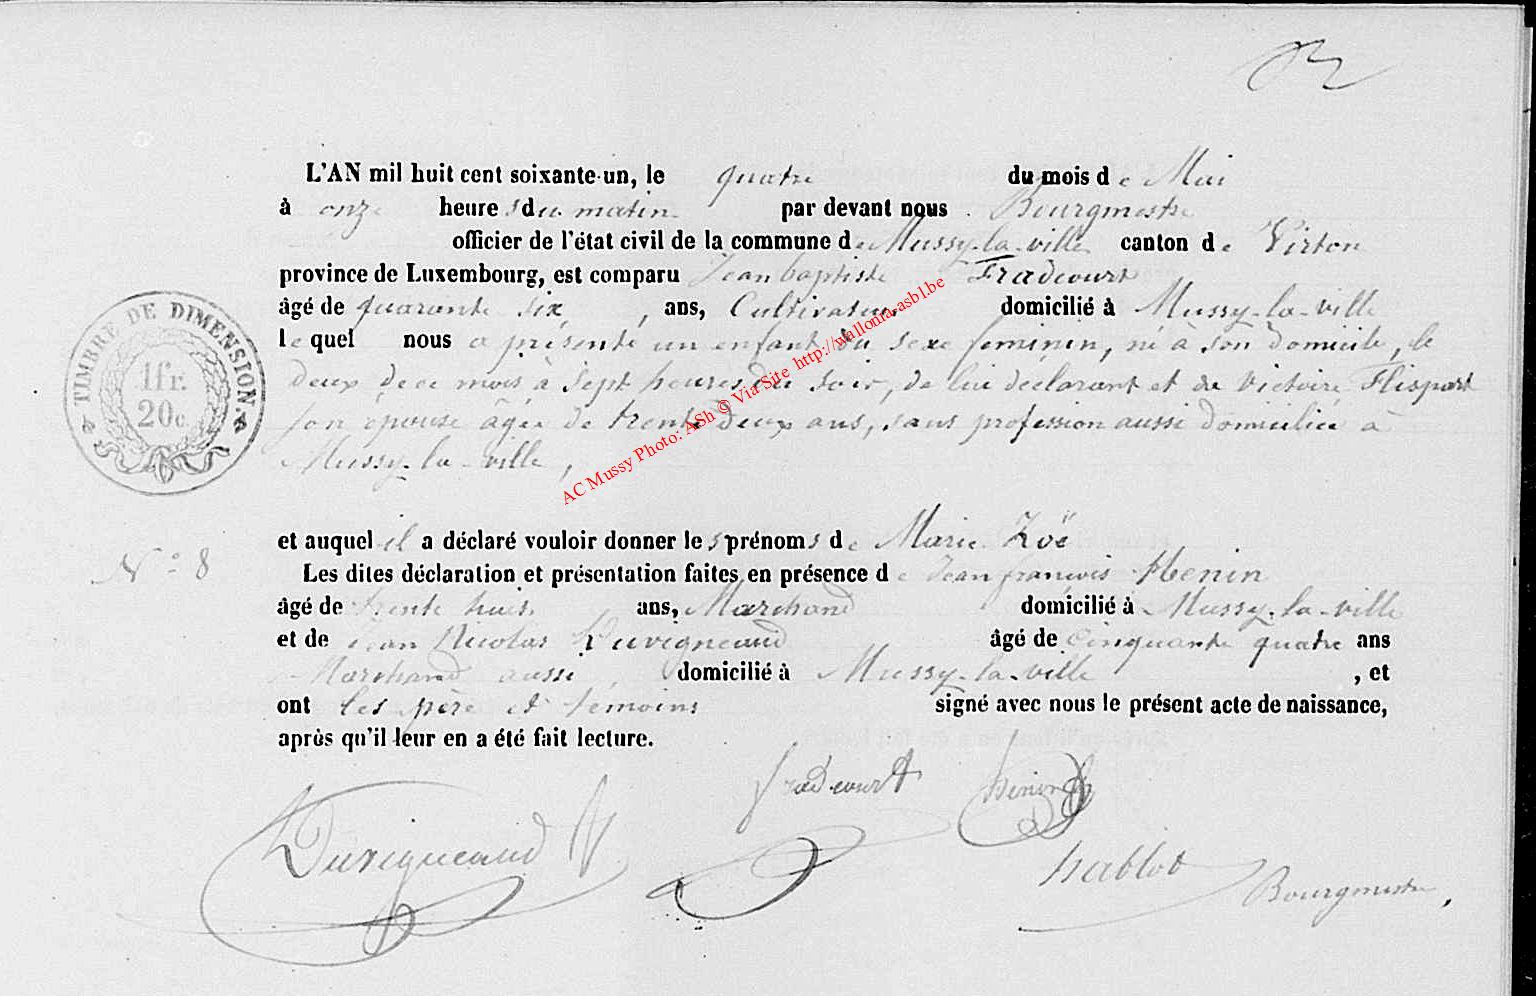 L'AN mil huit cent soixante-un, le quatre du mois de Mai
à onze heures du matin par devant nous Bourgmestre
officier de l'état civil de la commune de Mussy-la-ville canton de Virton
province de Luxembourg, est comparu Jean baptiste Fradcourt
âgé de quarante six, ans, Cultivateur domicilié à Mussy-la-ville
lequel nous a présenté un enfant du sexe féminin, né à son domicile, le
deux de ce mois à sept heures du soir, de lui déclarant et de Victoire Flispart
son épouse âgée de trente deux ans, sans profession aussi domiciliée à
Mussy-la-ville,
TIMBRE DE DIMENSION.
1fr.
20c
AC Mussy Photo: ASh © Via Site http://wallonia-asbl.be
et auquel il a déclaré vouloir donner les prénoms de Marie Zoë
N° 8
Les dites déclaration et présentation faites en présence de Jean françois Henin
âgé de trente huit ans, Marchand domicilié à Mussy-la-ville
et de Jean Nicolas Duvigneaud âgé de cinquante quatre ans
Marchand aussi, domicilié à Mussy-la-ville, et
ont les père et témoins signé avec nous le présent acte de naissance,
après qu'il leur en a été fait lecture.
Fradcourt Henin
Duvigneaud
hablot Bourgmestre,